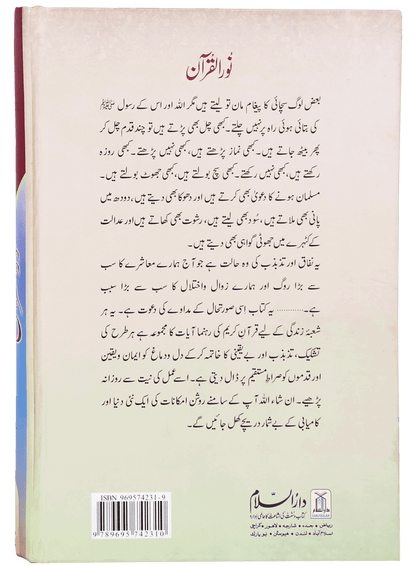 نُورُ القُرآن
بعض لوگ سچائی کا پیغام مان تو لیتے ہیں مگر اللہ اور اس کے رسول ﷺ
کی بتائی ہوئی راہ پر نہیں چلتے۔ کبھی چل بھی پڑتے ہیں تو چند قدم چل کر
پھر بیٹھ جاتے ہیں۔ کبھی نماز پڑھتے ہیں، کبھی نہیں پڑھتے۔ کبھی روزہ
رکھتے ہیں، کبھی نہیں رکھتے۔ کبھی سچ بولتے ہیں، کبھی جھوٹ بولتے ہیں۔
مسلمان ہونے کا دعویٰ بھی کرتے ہیں اور دھوکا بھی دیتے ہیں، دودھ میں
پانی بھی ملاتے ہیں، سُود بھی لیتے ہیں، رشوت بھی کھاتے ہیں اور عدالت
کے کٹہرے میں جھوٹی گواہی بھی دیتے ہیں۔
یہ نفاق اور تذبذب کی وہ حالت ہے جو آج ہمارے معاشرے کا سب
سے بڑا روگ اور ہمارے زوال و اختلال کا سب سے بڑا سبب
ہے۔............ یہ کتاب اسی صورتحال کے مداوے کی دعوت ہے۔ یہ ہر
شعبۂ زندگی کے لیے قرآن کریم کی رہنما آیات کا مجموعہ ہے جو ہر طرح کی
تشکیک، تذبذب اور بے یقینی کا خاتمہ کر کے دل و دماغ کو ایمان و یقین
اور قدموں کو صراطِ مستقیم پر ڈال دیتی ہے۔ اسے عمل کی نیت سے روزانہ
پڑھیے۔ ان شاء اللہ آپ کے سامنے روشن امکانات کی ایک نئی دنیا اور
کامیابی کے بے شمار دریچے کھل جائیں گے۔
ISBN 969574231-9
9 789695 742310
دارالسلام
کتاب و سنت کی اشاعت کا عالمی ادارہ
ریاض • جدہ • شارجہ • لاہور • کراچی
اسلام آباد • لندن • ہیوسٹن • نیو یارک